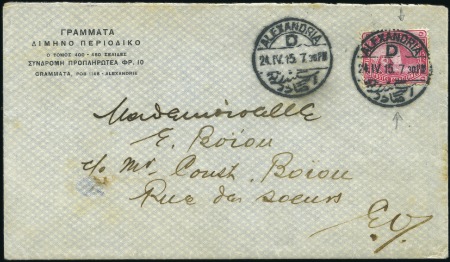 ΓΡΑΜΜΑΤΑ
ΔΙΜΗΝΟ ΠΕΡΙΟΔΙΚΟ
Ο ΤΟΜΟΣ 400 - 450 ΣΕΛΙΔΕΣ
ΣΥΝΔΡΟΜΗ ΠΡΟΠΛΗΡΩΤΕΑ ΦΡ. 10
GRAMMATA, POX 1146 - ALEXANDRIA
ALEXANDRIA
D
24.IV.15. 7.30PM
ALEXANDRIA
D
24.IV.15. 7.30PM
Mademoiselle
E. Boïou
c/o Mr. Const. Boïou
Rue des soeurs
E.V.